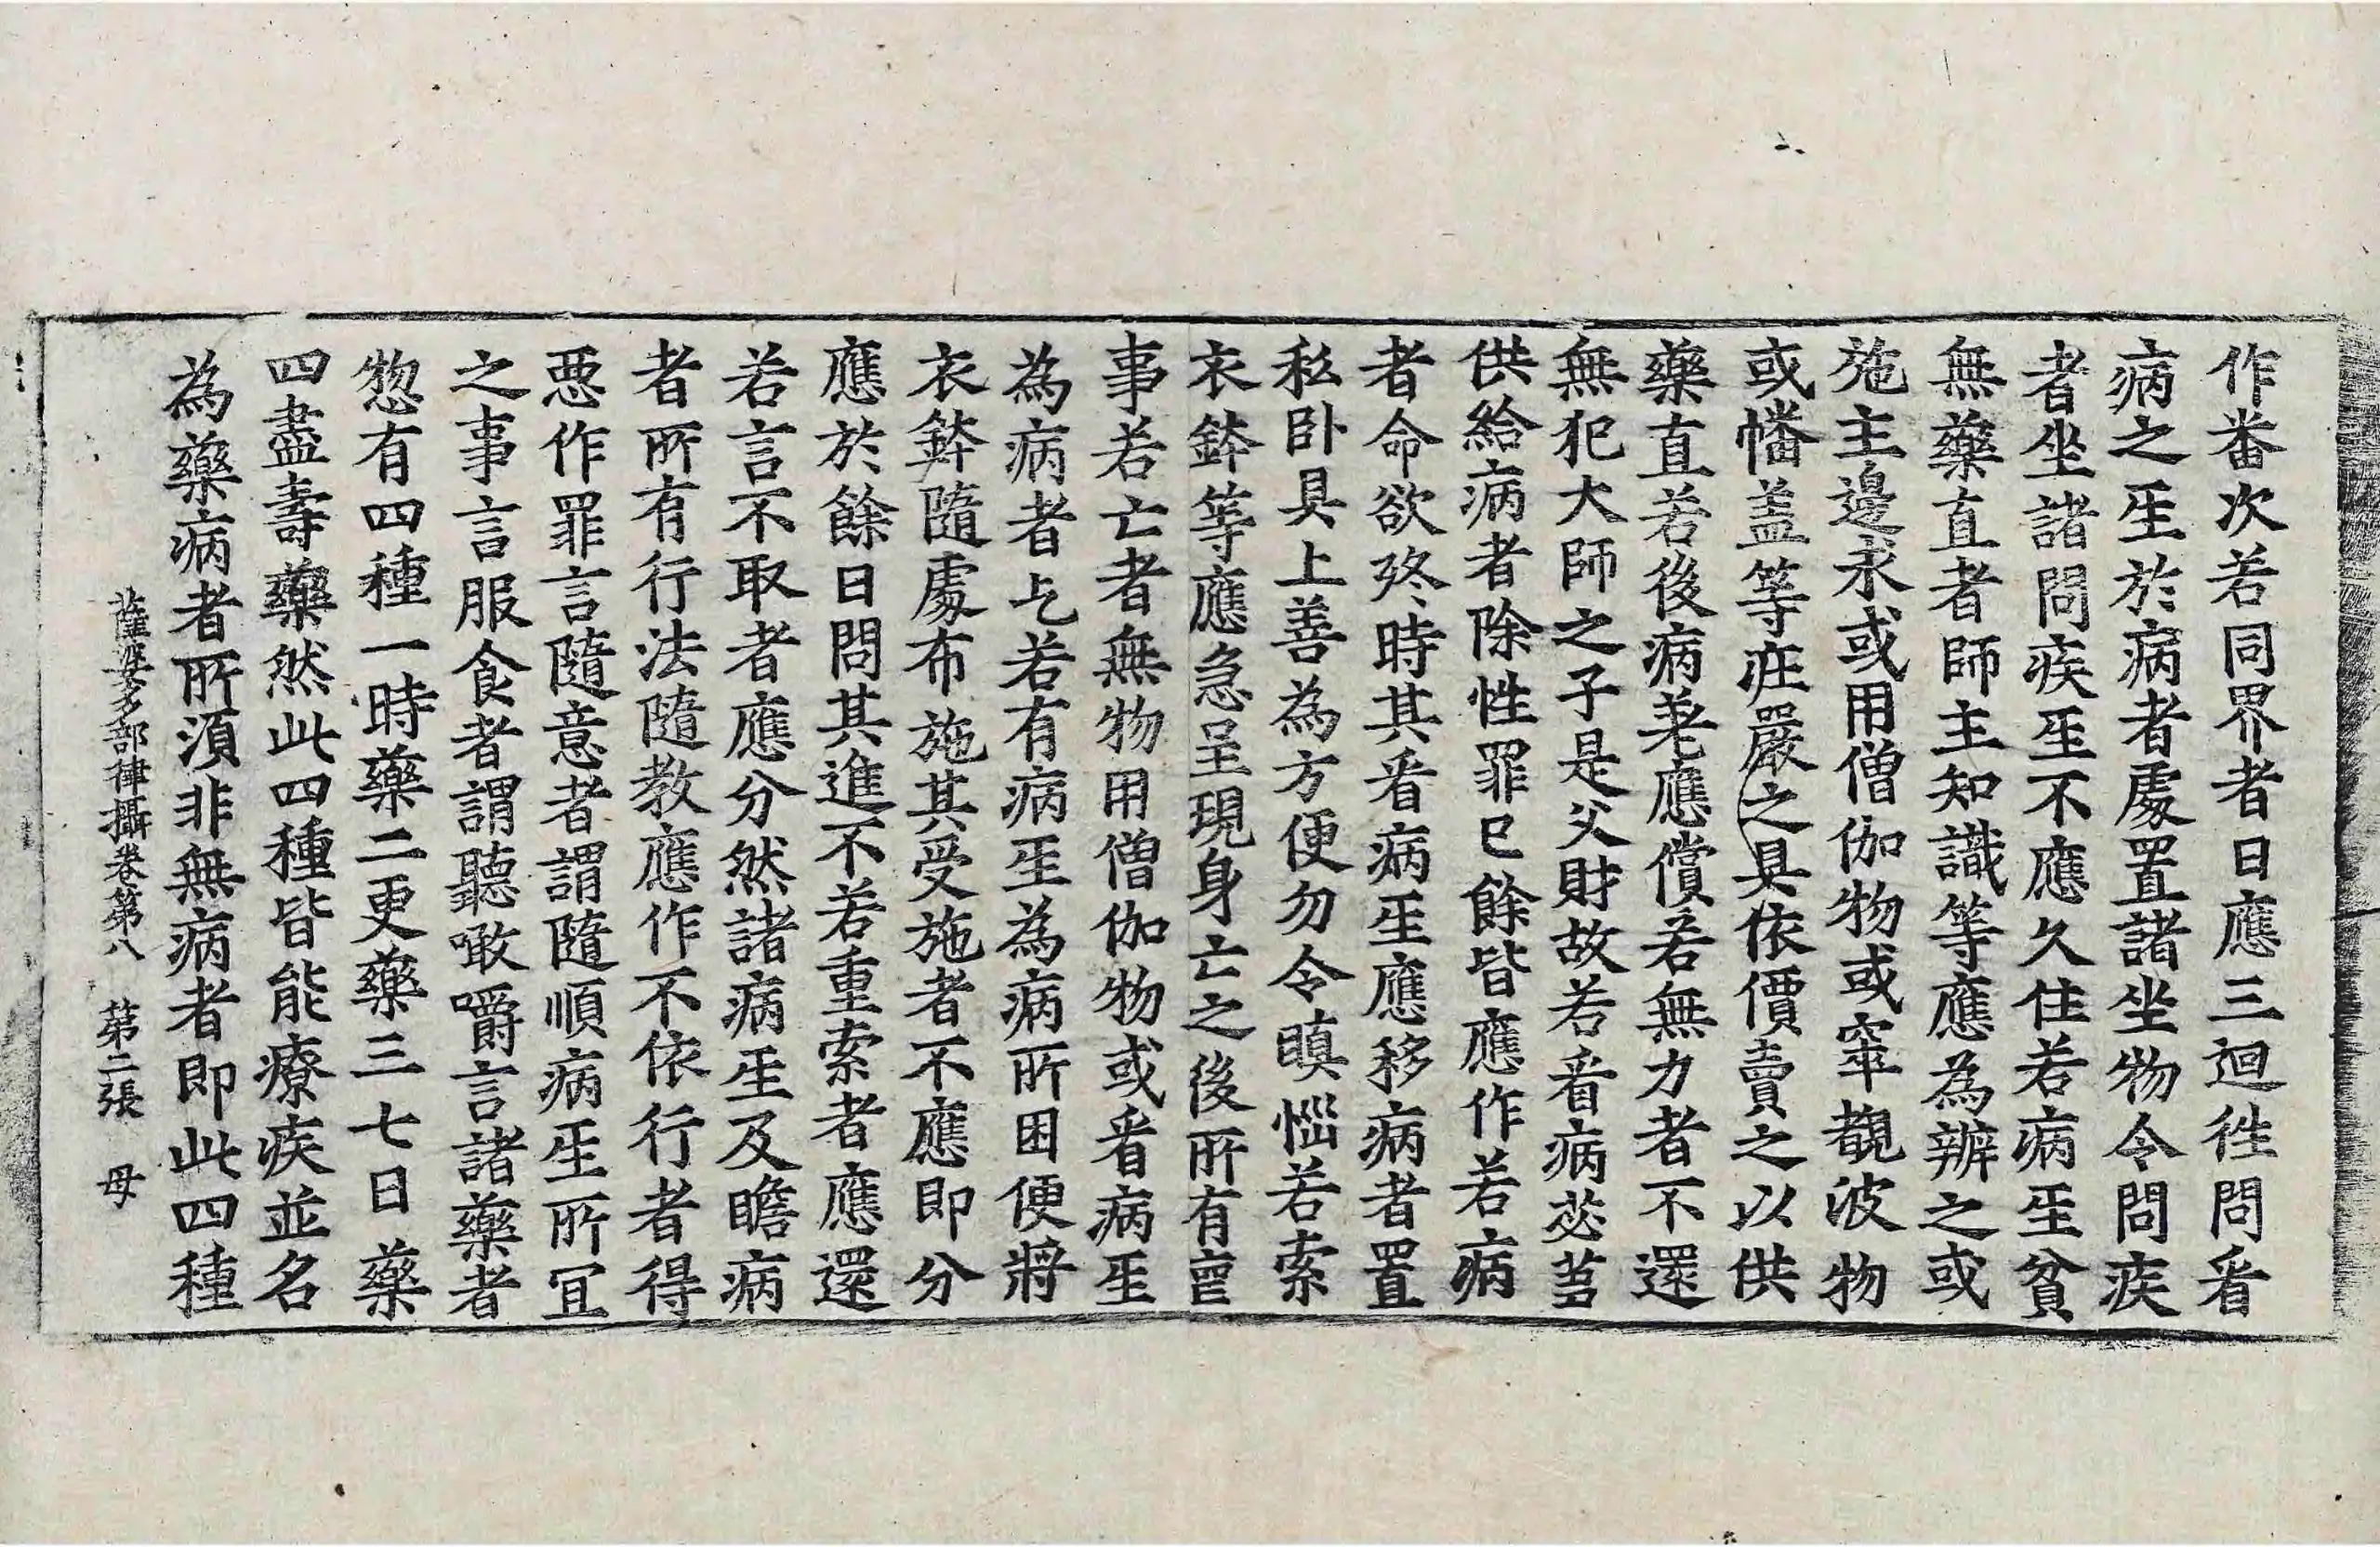 作番次若同界者日應三迴徃問看
病之𤯔於病者處置諸坐物令問疾
者坐諸問疾𤯔不應久住若病𤯔貧
無藥直者師主知識等應為辦之或
施主邊求或用僧伽物或窣覩波物
或幡盖等庄嚴之具依價賣之以供
藥直若後病差應償若無力者不還
無犯大師之子是父財故若看病苾蒭
供給病者除性罪已餘皆應作若病
者命欲終時其看病𤯔應移病者置
私卧具上善為方便勿令瞋惱若索
衣鉢等應急呈現身亡之後所有喪
事若亡者無物用僧伽物或看病𤯔
為病者乞若有病𤯔為病所困便將
衣鉢隨處布施其受施者不應即分
應於餘日問其進不若重索者應還
若言不取者應分然諸病𤯔及瞻病
者所有行法隨教應作不依行者得
惡作罪言隨意者謂隨順病𤯔所冝
之事言服食者謂聽噉嚼言諸藥者
惣有四種一時藥二更藥三七日藥
四盡壽藥然此四種皆能療疾並名
為藥病者所湏非無病者即此四種
薩婆多部律攝卷第八 第二張 母